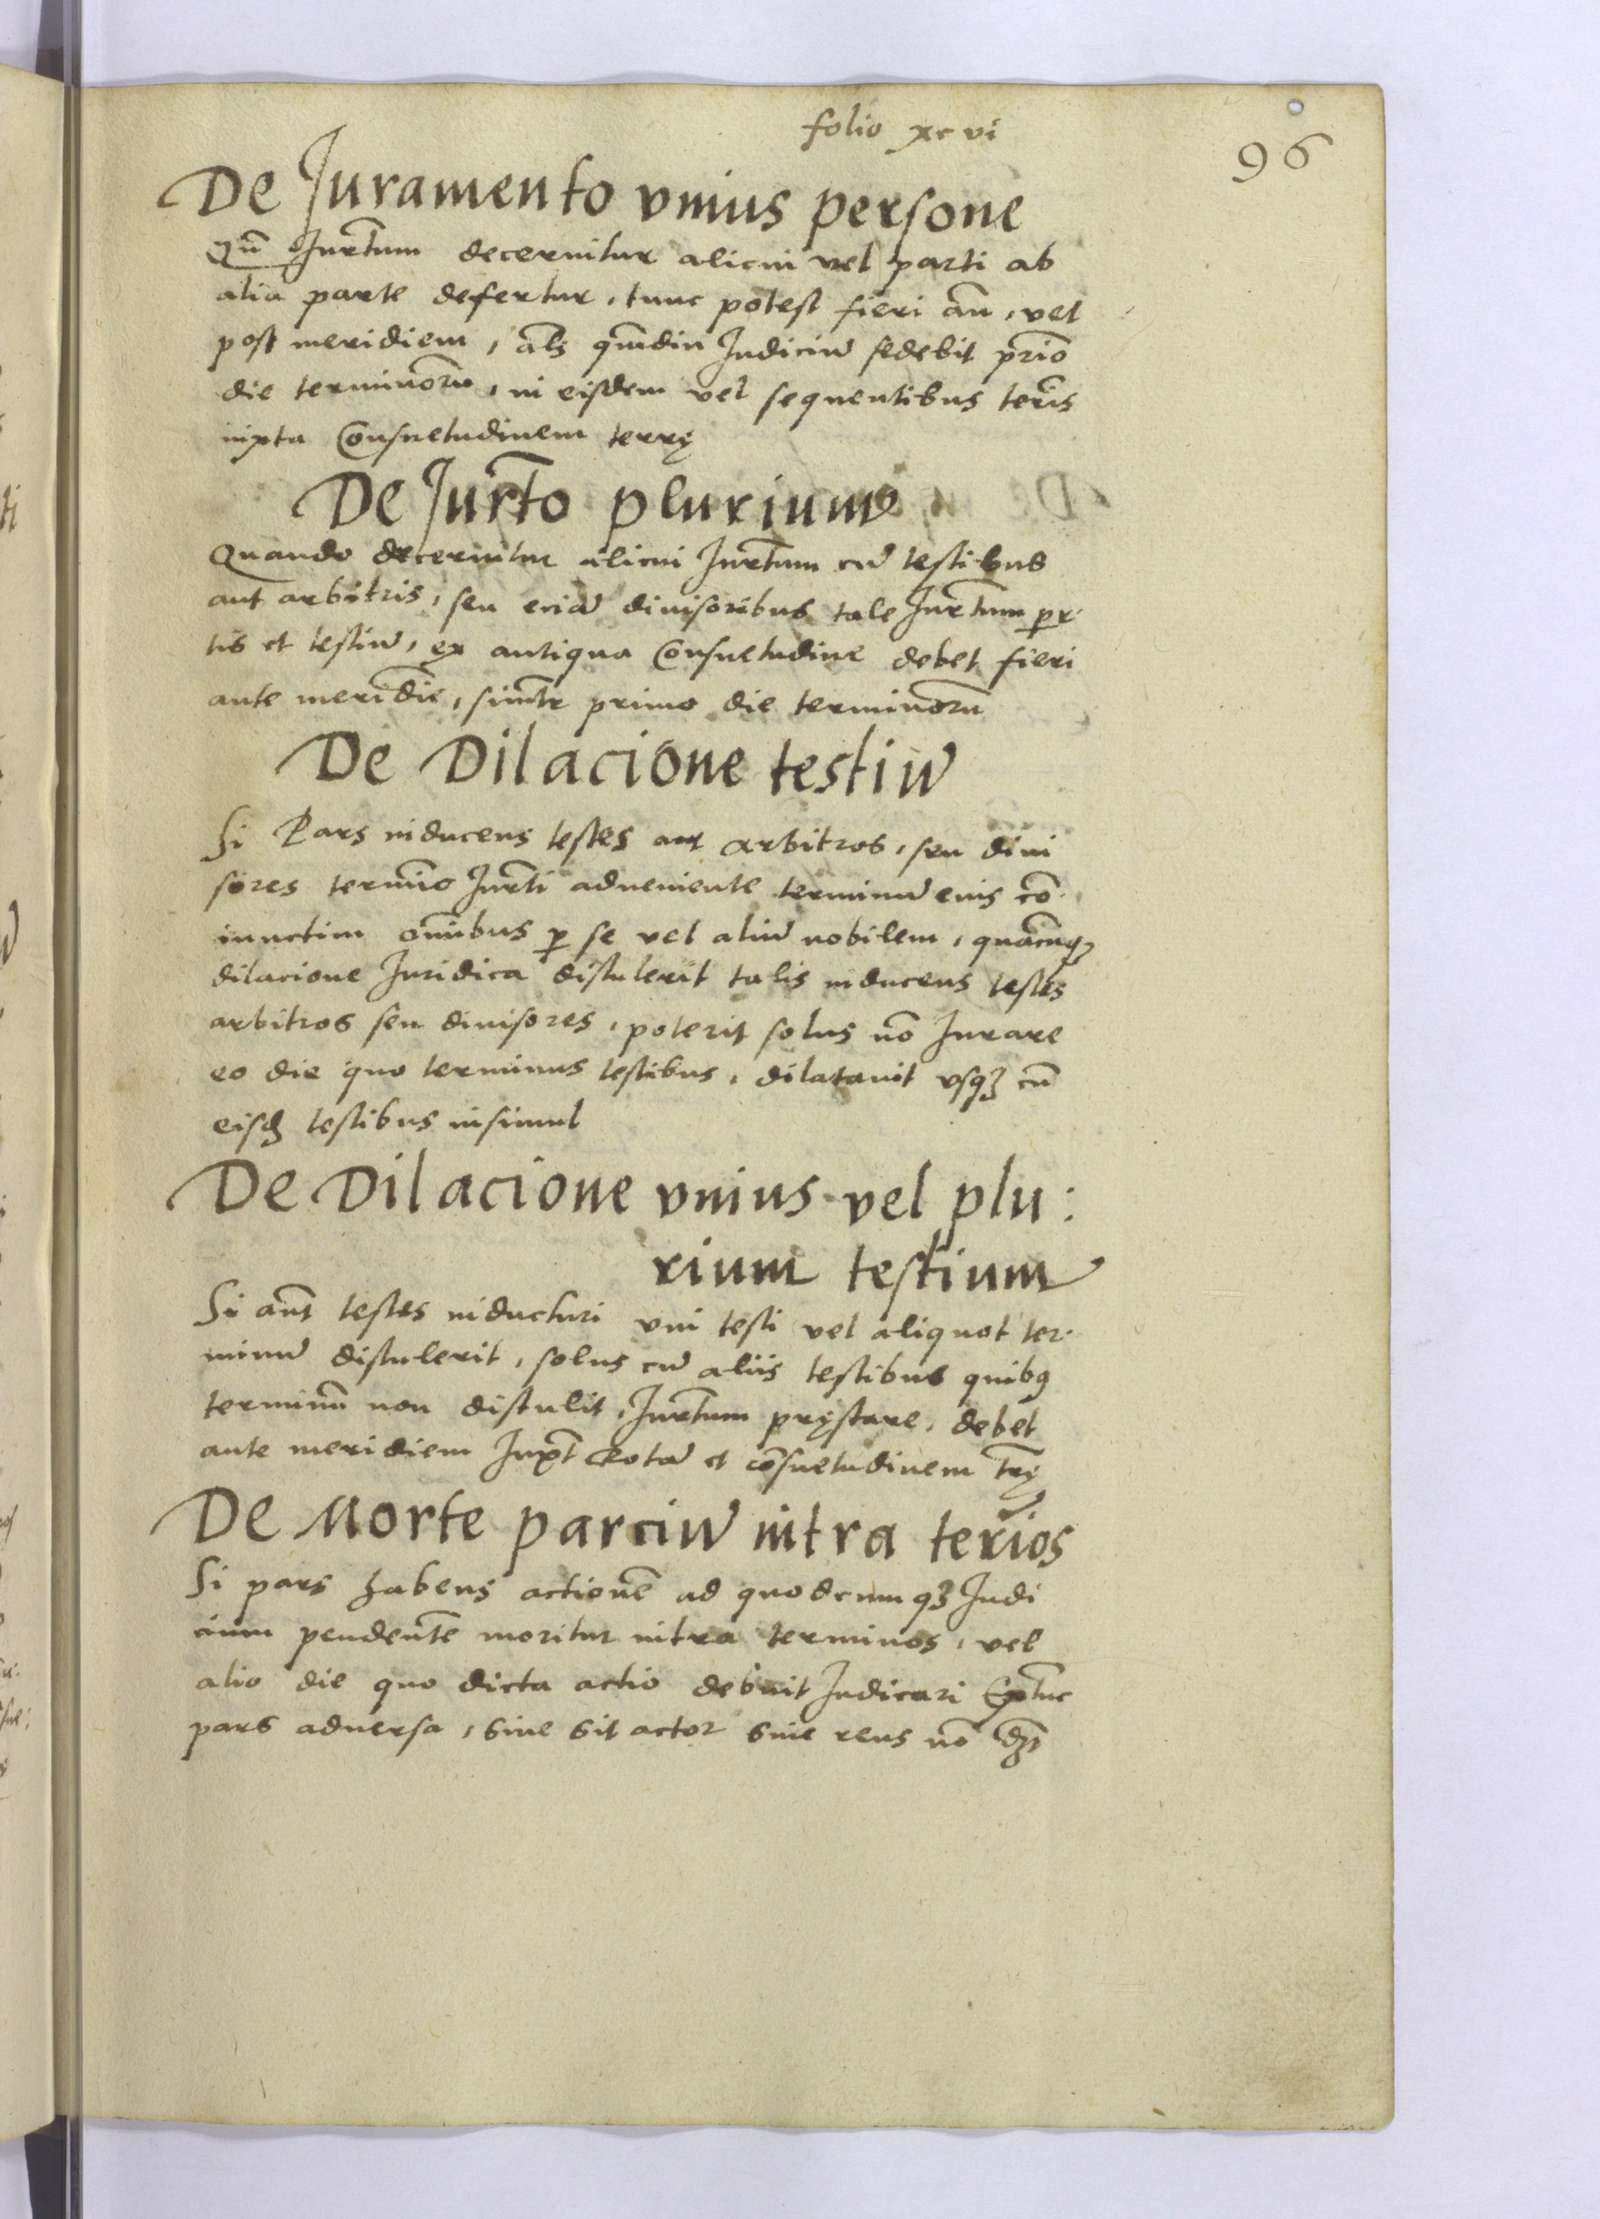 folio xcvi
96
De Juramento vnius persone
Qñ Jurtum decernitur alicui vel parti ab
alia parte defertur, tunc potest fieri añ, vel
post meridiem, als qũdiu Judiciũ sedebit prĩo
die terminorũ, in eisdem vel sequentibus terĩs
iuxta Consuetudinem terrę
De Jurto plurium
Quando decernitur alicui Jurtum cũ testibus
aut arbitris, seu eciã diuisoribus tale Jurtum par.
tis et testiũ, ex antiqua Consuetudine debet fieri
ante meridiẽ, simtr primo die terminorũ
De Dilacione testiũ
Si Pars inducens testes aut arbitros, seu diui
sores termĩo Jurti adueniente terminũ eius cõ.
iunctim omĩbus p se vel aliũ nobilem, quãcunqȝ
dilacione Juridica distulerit talis inducens testes
arbitros seu diuisores, poterit solus nõ Jurare
eo die quo terminus testibus, dilatauit vsqȝ cũ
eisd testibus insimul
De Dilacione vnius vel plu:
rium testium
Si aũt testes inducturi vni testi vel aliquot ter.
minũ distulerit, solus cũ aliis testibus quibꝰ
terminũ non distulit, Jurtum pręstare, debet
ante meridiem Juxt Rotã et cõsuetudinem trę
De Morte parciũ intra terĩos
Si pars habens actionẽ ad quodcumqȝ Judi
cium pendentẽ moritur intra terminos, vel
alio die quo dicta actio debuit Judicari Extunc
pars aduersa, siue sit actor siue reus nõ